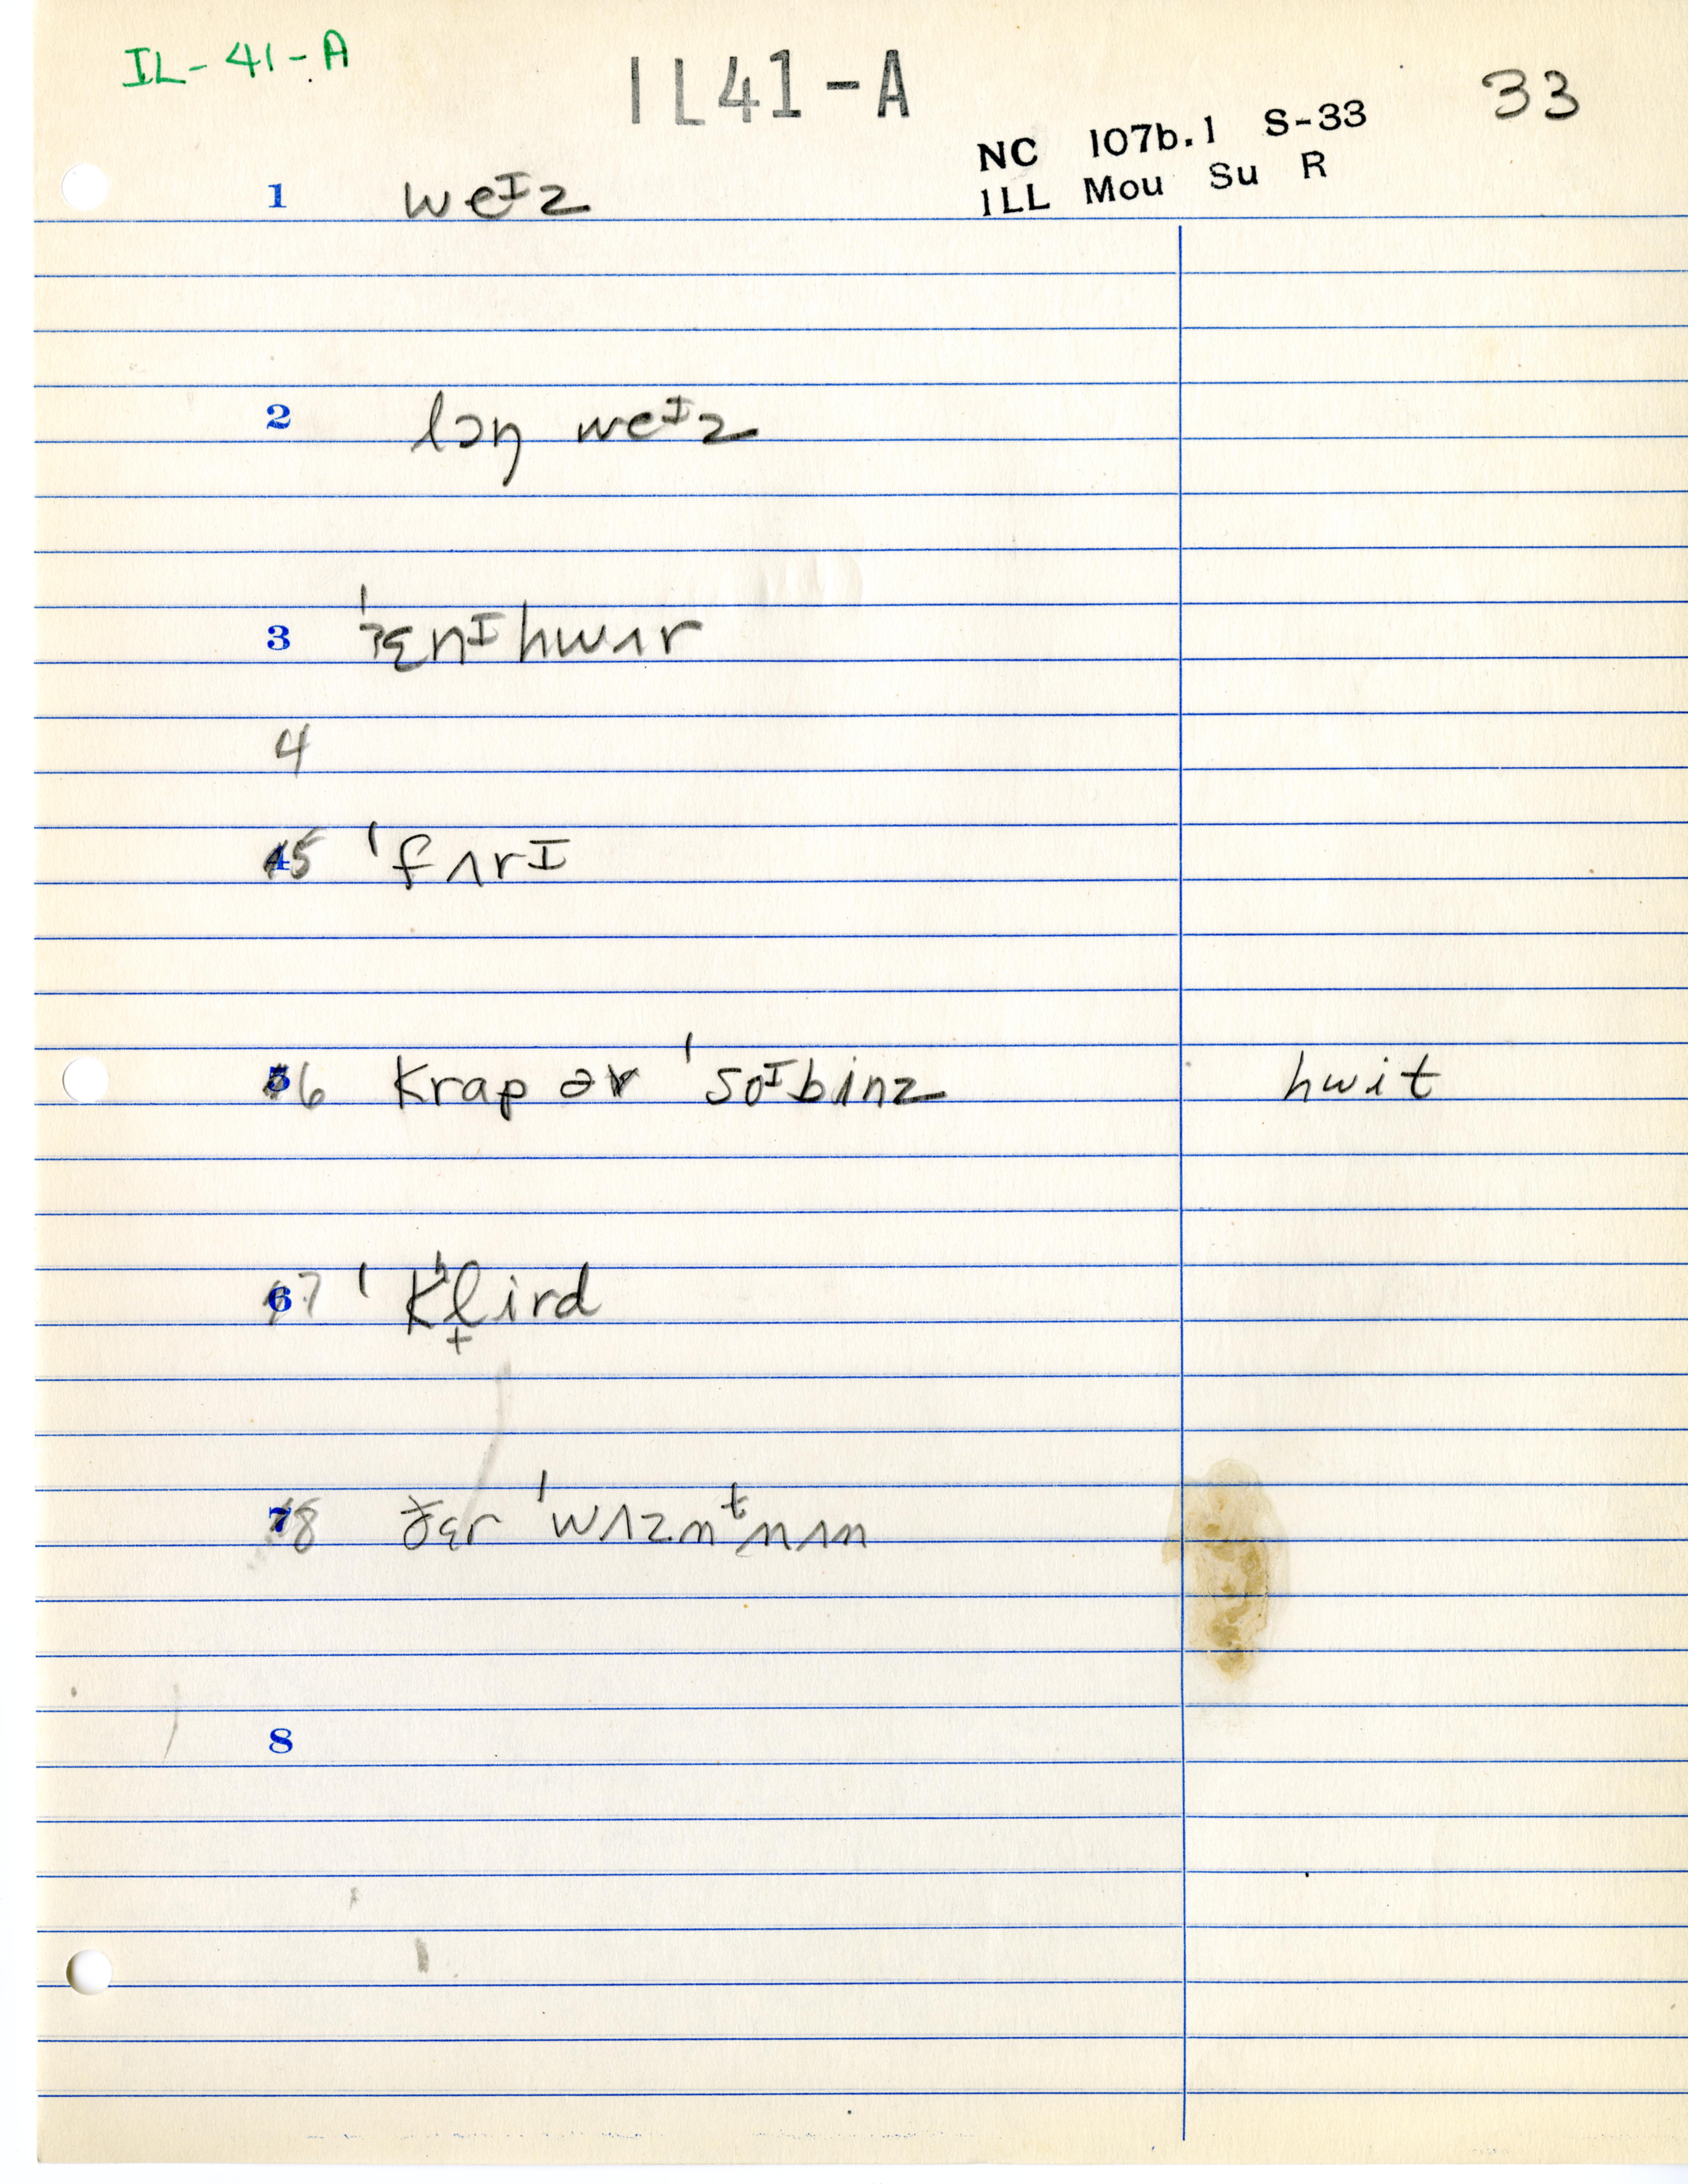 IL-41-A
IL41-A
33
NC 107b.1 S-33
ILL Mou Su R
1 weᴵz
2 lɔŋ weᴵz
3 ˈʔɛnᴵhwʌr
4
5 ˈfʌrɪ
6 krap əv ˈsoᴵbinz hwit
7 ˈkʰl̟ird
8 ðɛr ˈwʌznᵗnʌn
8